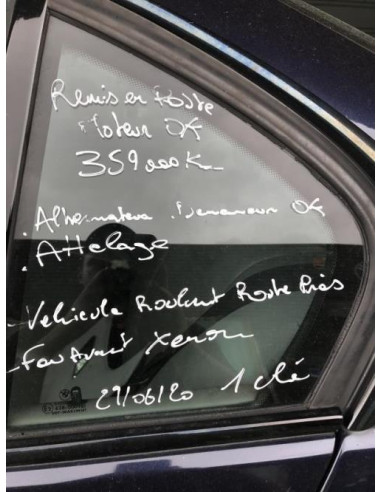 Remis en Route
Moteur OK
359000K
. Alternateur . Demarreur OK
. Attelage
- Vehicule Roulant Route Près
- Feu Avant Xenon
29/06/20 1 clé